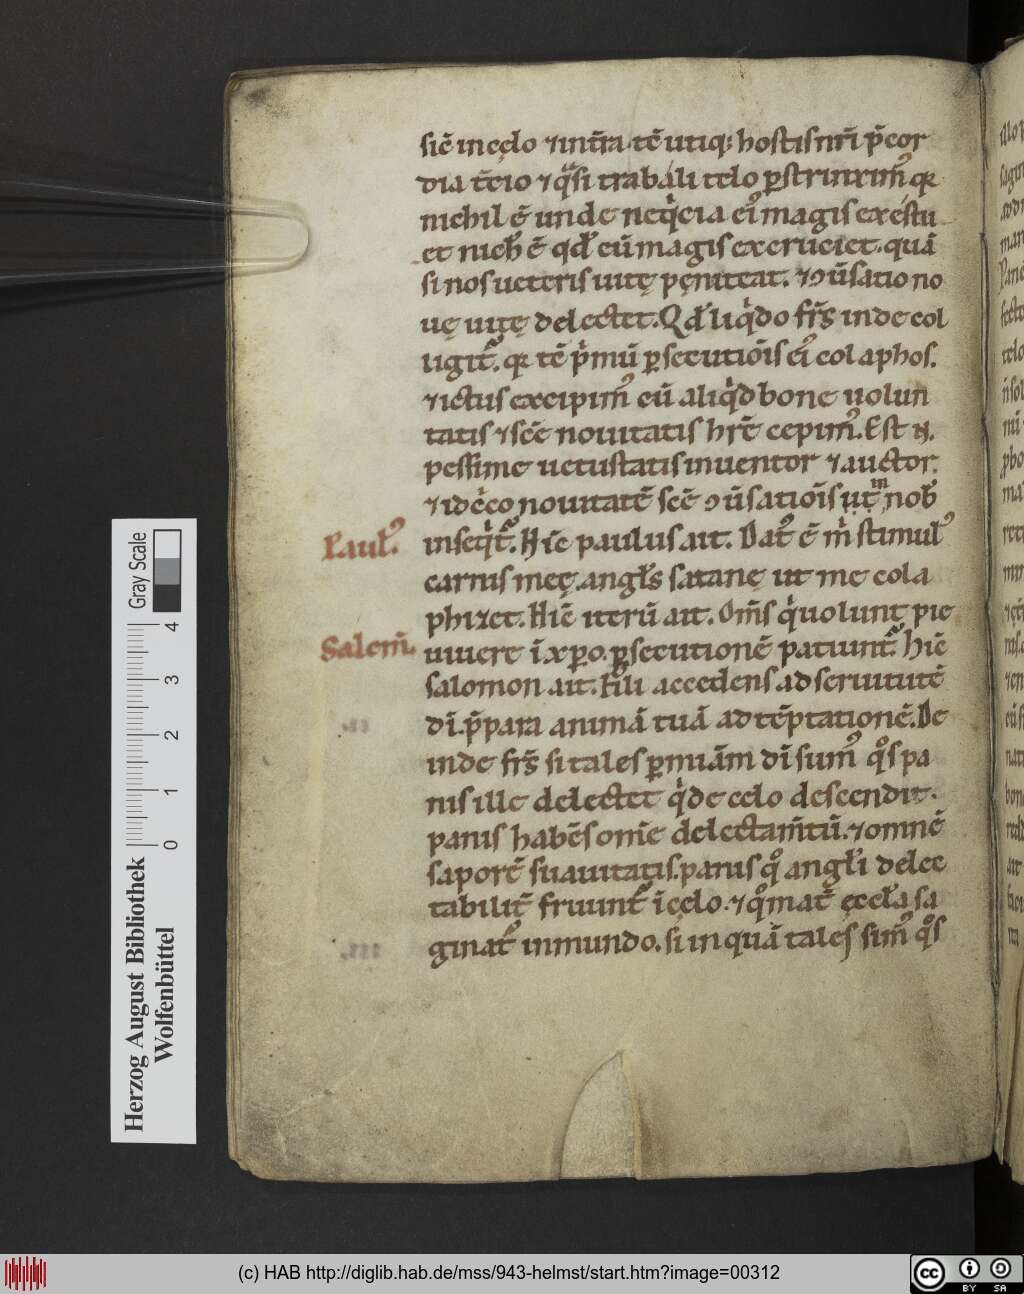 sic̄ in cęlo ⁊ in tr̄a. tē utiq; hostis nr̄i p̄cor
dia t̄cio ⁊ qͣsi trabali telo ꝑstrinxim᷒ qꝛ
nichil ē unde neqͥcia ei᷒ magis exestu
et nich̄ ē qd̄ eū magis excruciet. quā
si nos ueteris uitę pęniteat. ⁊ ↄuersatio no
uę uitę delectet. Qd̄ liqͥdo fr̄s inde col
ligit᷒. qꝛ tē pͥmū ꝑsecutiōis ei᷒ colaphos.
⁊ ictus excipim᷒ cū aliqͥd bone uolun
tatis ⁊ sc̄ē nouitatis hr̄e cepim᷒. Est n̄.
pessime uetustatis inuentor ⁊ auctor.
⁊ idcͥco nouitatē sc̄ē ↄuersatiōis ut in nob̄
Paul᷒.
inseqͥt᷒. Hic̄ paulus ait. Dat᷒ ē mͥ stimul᷒
carnis meę. angl̄s satanę ut me cola
phizet. Hic̄ iterū ait. Om̄s qͥ uolunt pie
Salem̄.
uiuere ī xp̄o. ꝑsecutionē patiunt᷒. hic̄
salomon ait. Fili accedens ad seruitutē
dī. p̄para animā tuā ad tēptationē. De
inde fr̄s si tales ꝑ miām dī sum᷒ qͦs pa
nis ille delectet qͥ de celo descendit.
panis habēs omne delectam̄tū. ⁊ omnē
saporē suauitatis. panis qͦ angl̄i delec
tabilit̄ fruunt᷒ ī cęlo. ⁊ qͦ mat̄ ęccl̄a sa
ginat᷒ in mundo. si inquā tales sim᷒ qͦs
Herzog August Bibliothek
Wolfenbüttel
0 1 2 3 4
Gray Scale
(c) HAB http://diglib.hab.de/mss/943-helmst/start.htm?image=00312
cc BY SA